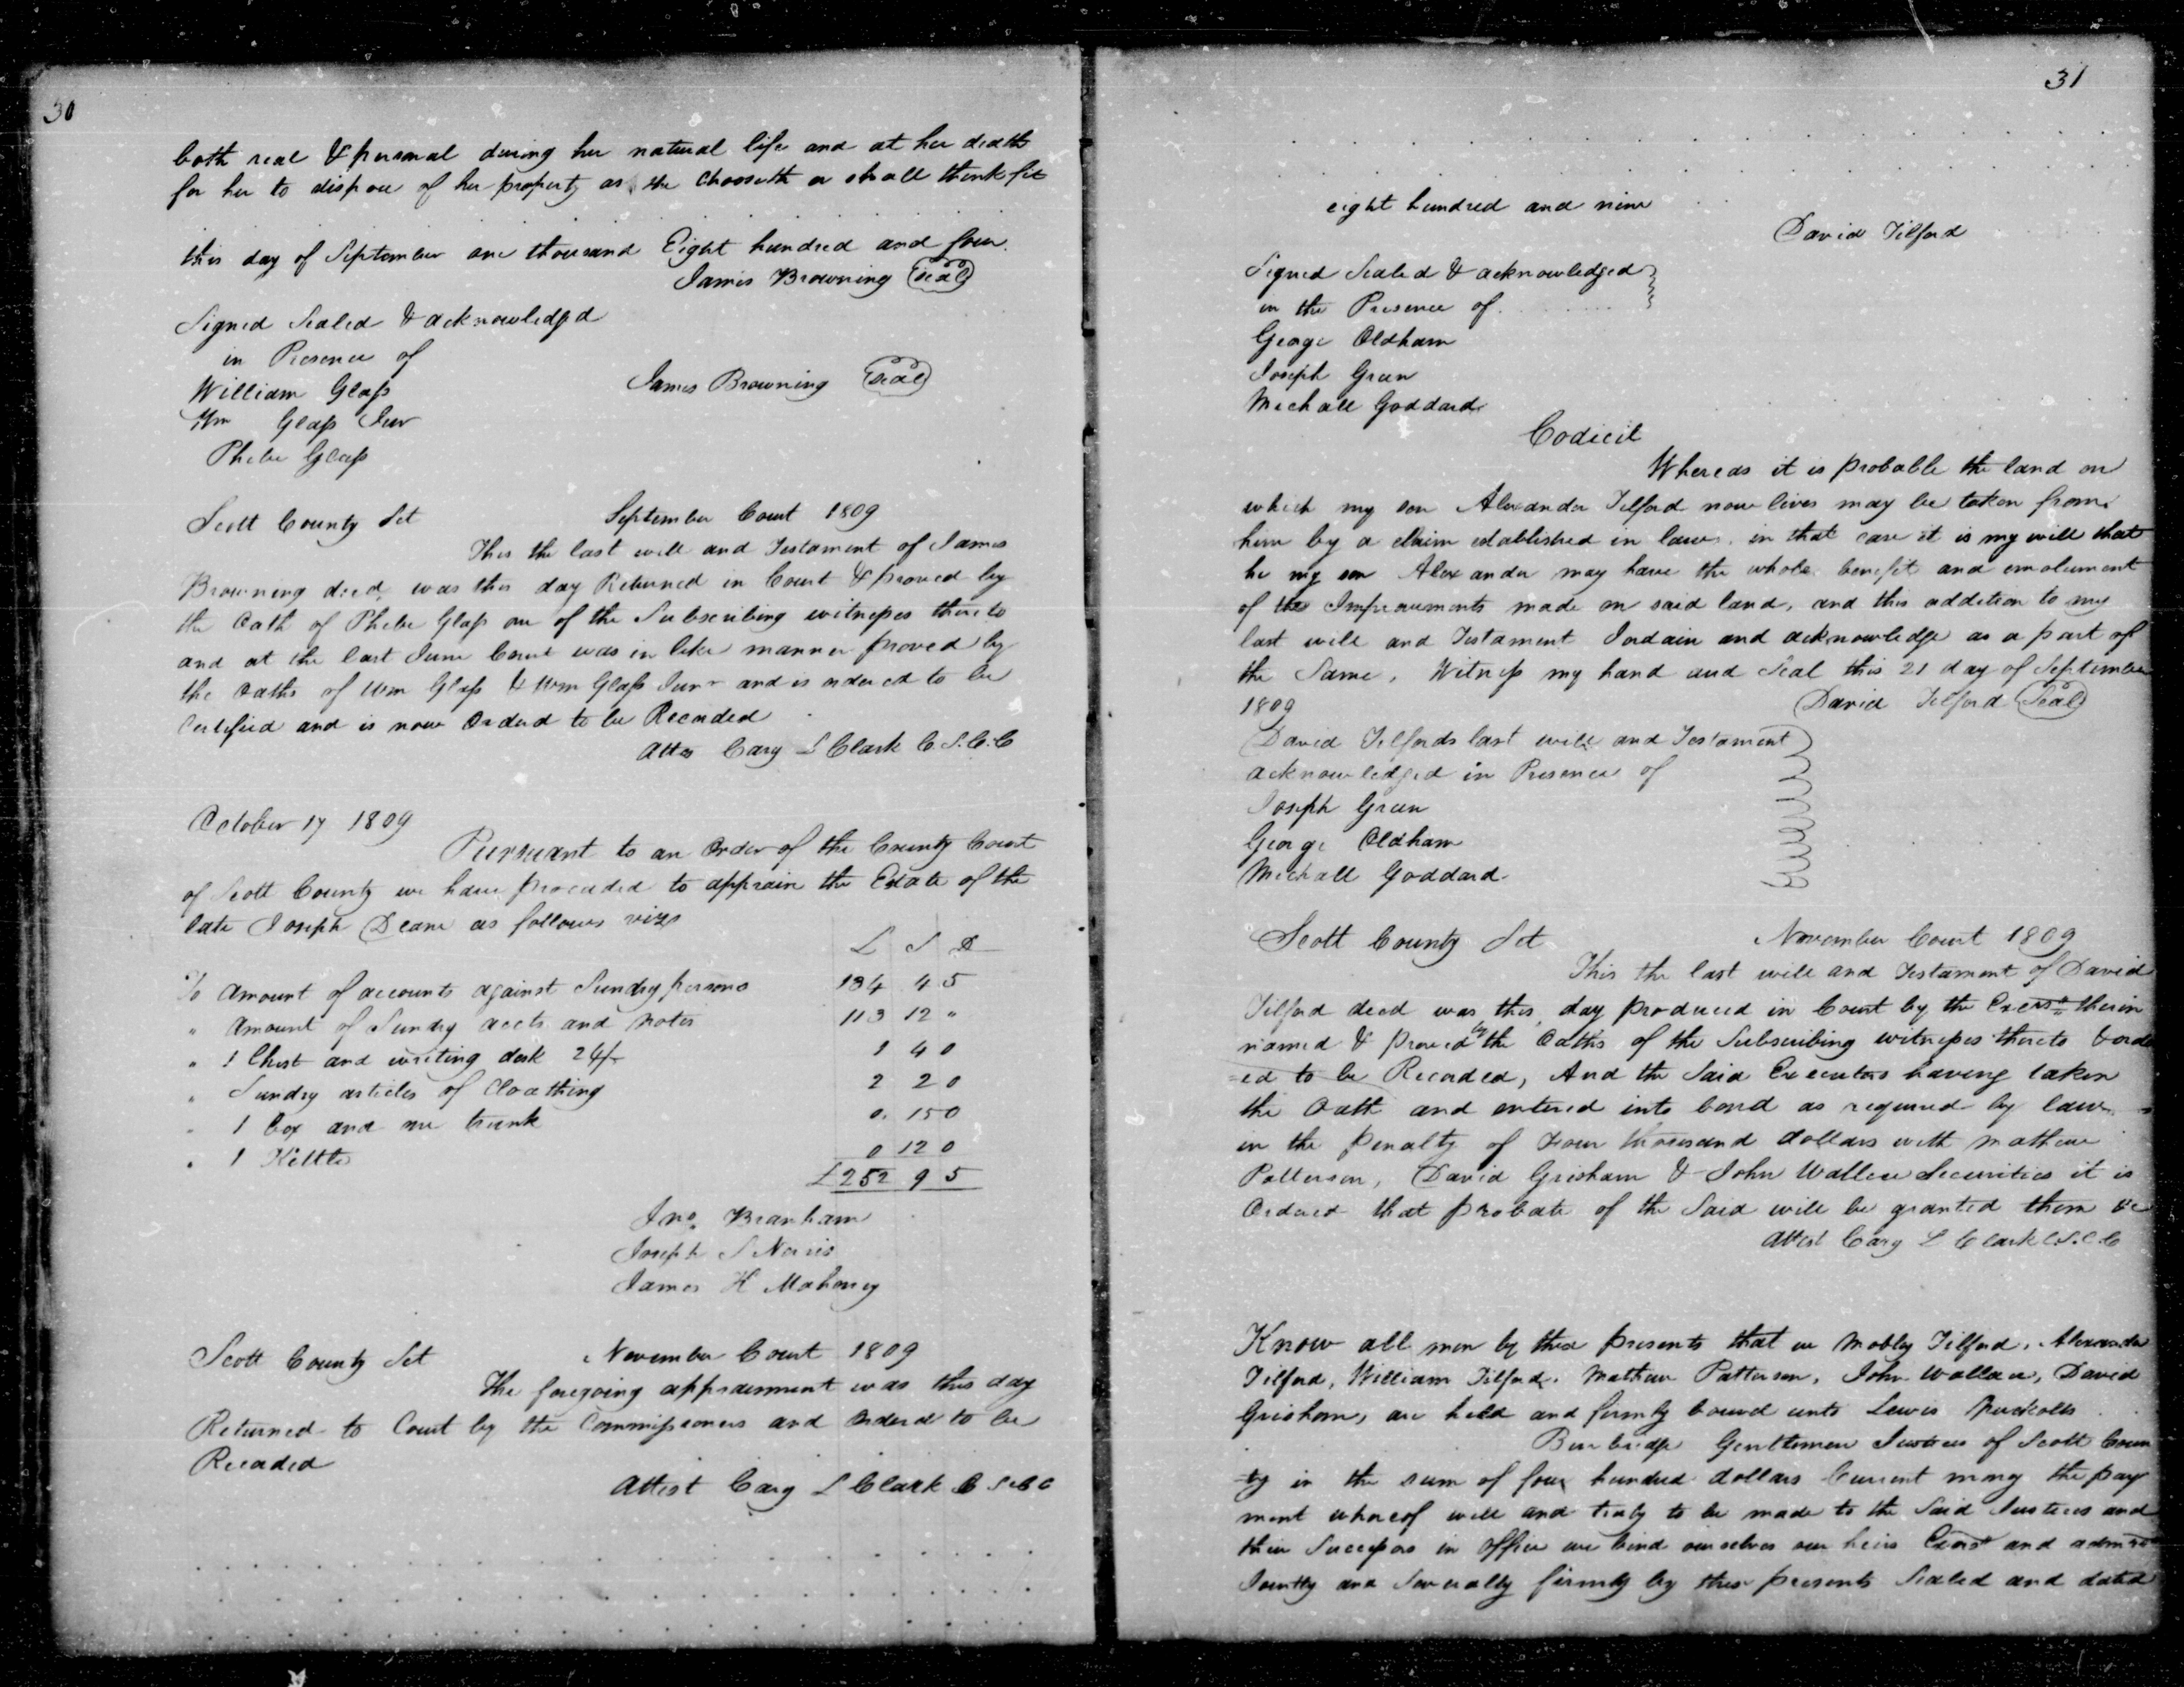 30
both real & personal during her natural life and at her death
for her to dispose of her property as she chooseth or shall think fit
this day of September one thousand Eight hundred and four.
James Browning Seal
Signed Sealed & acknowledged
in Presence of
William Glass
James Browning Seal
Wm Glass Jun
Phebe Glass
Scott County Sct September Court 1809
This the last will and Testament of James
Browning decd. was this day Returned in Court & proved by
the Oath of Phebe Glass one of the Subscribing witnesses thereto
and at the last June Court was in like manner proved by
the oaths of Wm Glass & Wm Glass Junr and is ordered to be
Certified and is now Ordered to be Recorded
Atto Cary L Clark C.S.C.C
October 17 1809
Pursuant to an Order of the County Court
of Scott County we have proceeded to appraise the Estate of the
late Joseph Deane as follows viz
L S D
To Amount of accounts against Sundry persons 134 4 5
" Amount of Sundry accts and Notes 113 12 "
" 1 Chest and writing desk 24/- 1 4 0
" Sundry articles of Cloathing 2 2 0
" 1 Box and one trunk 0. 15 0
" 1 Kettle 0 12 0
£252 9 5
Jno. Branham
Joseph S Norris
James H Mahoney
Scott County Sct November Court 1809
The foregoing appraisement was this day
Returned to Court by the Commissioners and Ordered to be
Recorded
Attest Cary L Clark C S C C
31
eight hundred and nine
David Tilford
Signed Sealed & acknowledged
in the Presence of
George Oldham
Joseph Green
Michall Goddard
Codicil
Whereas it is probable the land on
which my son Alexander Tilford now lives may be taken from
him by a claim established in law. in that case it is my will that
he my son Alexander may have the whole benefit and emolument
of the Improvements made on said land, and this addition to my
last will and Testament I ordain and acknowledge as a part of
the Same, Witness my hand and Seal this 21 day of September
1809 David Tilford Seal
David Tilfords last will and Testament
acknowledged in Presence of
Joseph Green
George Oldham
Michall Goddard
Scott County Sct November Court 1809
This the last will and Testament of David
Tilford decd was this day produced in Court by the Exers therein
named & proved by the Oaths of the Subscribing witnesses thereto & order
=ed to be Recorded, And the Said Executors having taken
the Oath and entered into bond as required by law
in the penalty of Four thousand dollars with Mathew
Patterson, David Grisham & John Wallace Securities it is
Ordered that probate of the Said will be granted them &c
Attest Cary L Clark C.S.C.C
Know all men by these presents that we Mobley Tilford, Alexander
Tilford, William Tilford, Mathew Patterson, John Wallace, David
Grisham, are held and firmly bound unto Lewis Nuckolls
Burbridge Gentlemen Justices of Scott Coun
ty in the sum of four hundred dollars Current mony the pay
ment whereof will and truly to be made to the Said Justices and
their Successors in office we bind ourselves our heirs Exors and admrs
Jointly and Severally firmly by these presents Sealed and dated